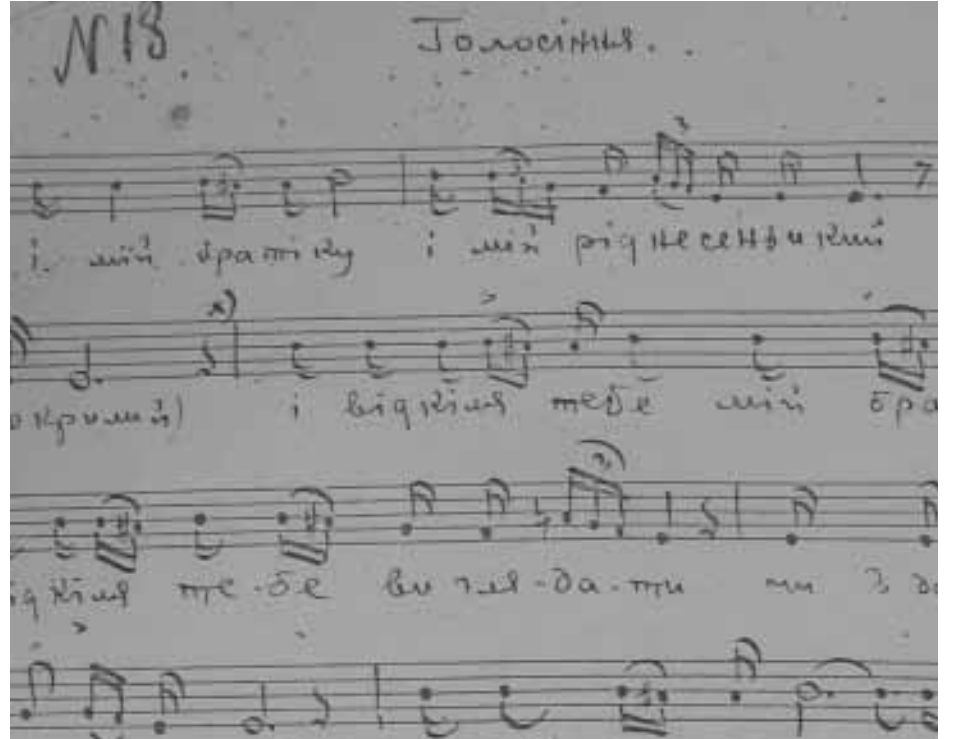 N 18
Голосіння.
і мій братіку і мій ріднесенький
і відкіля тебе мій бра
те-бе ви гля-да-ти чи з